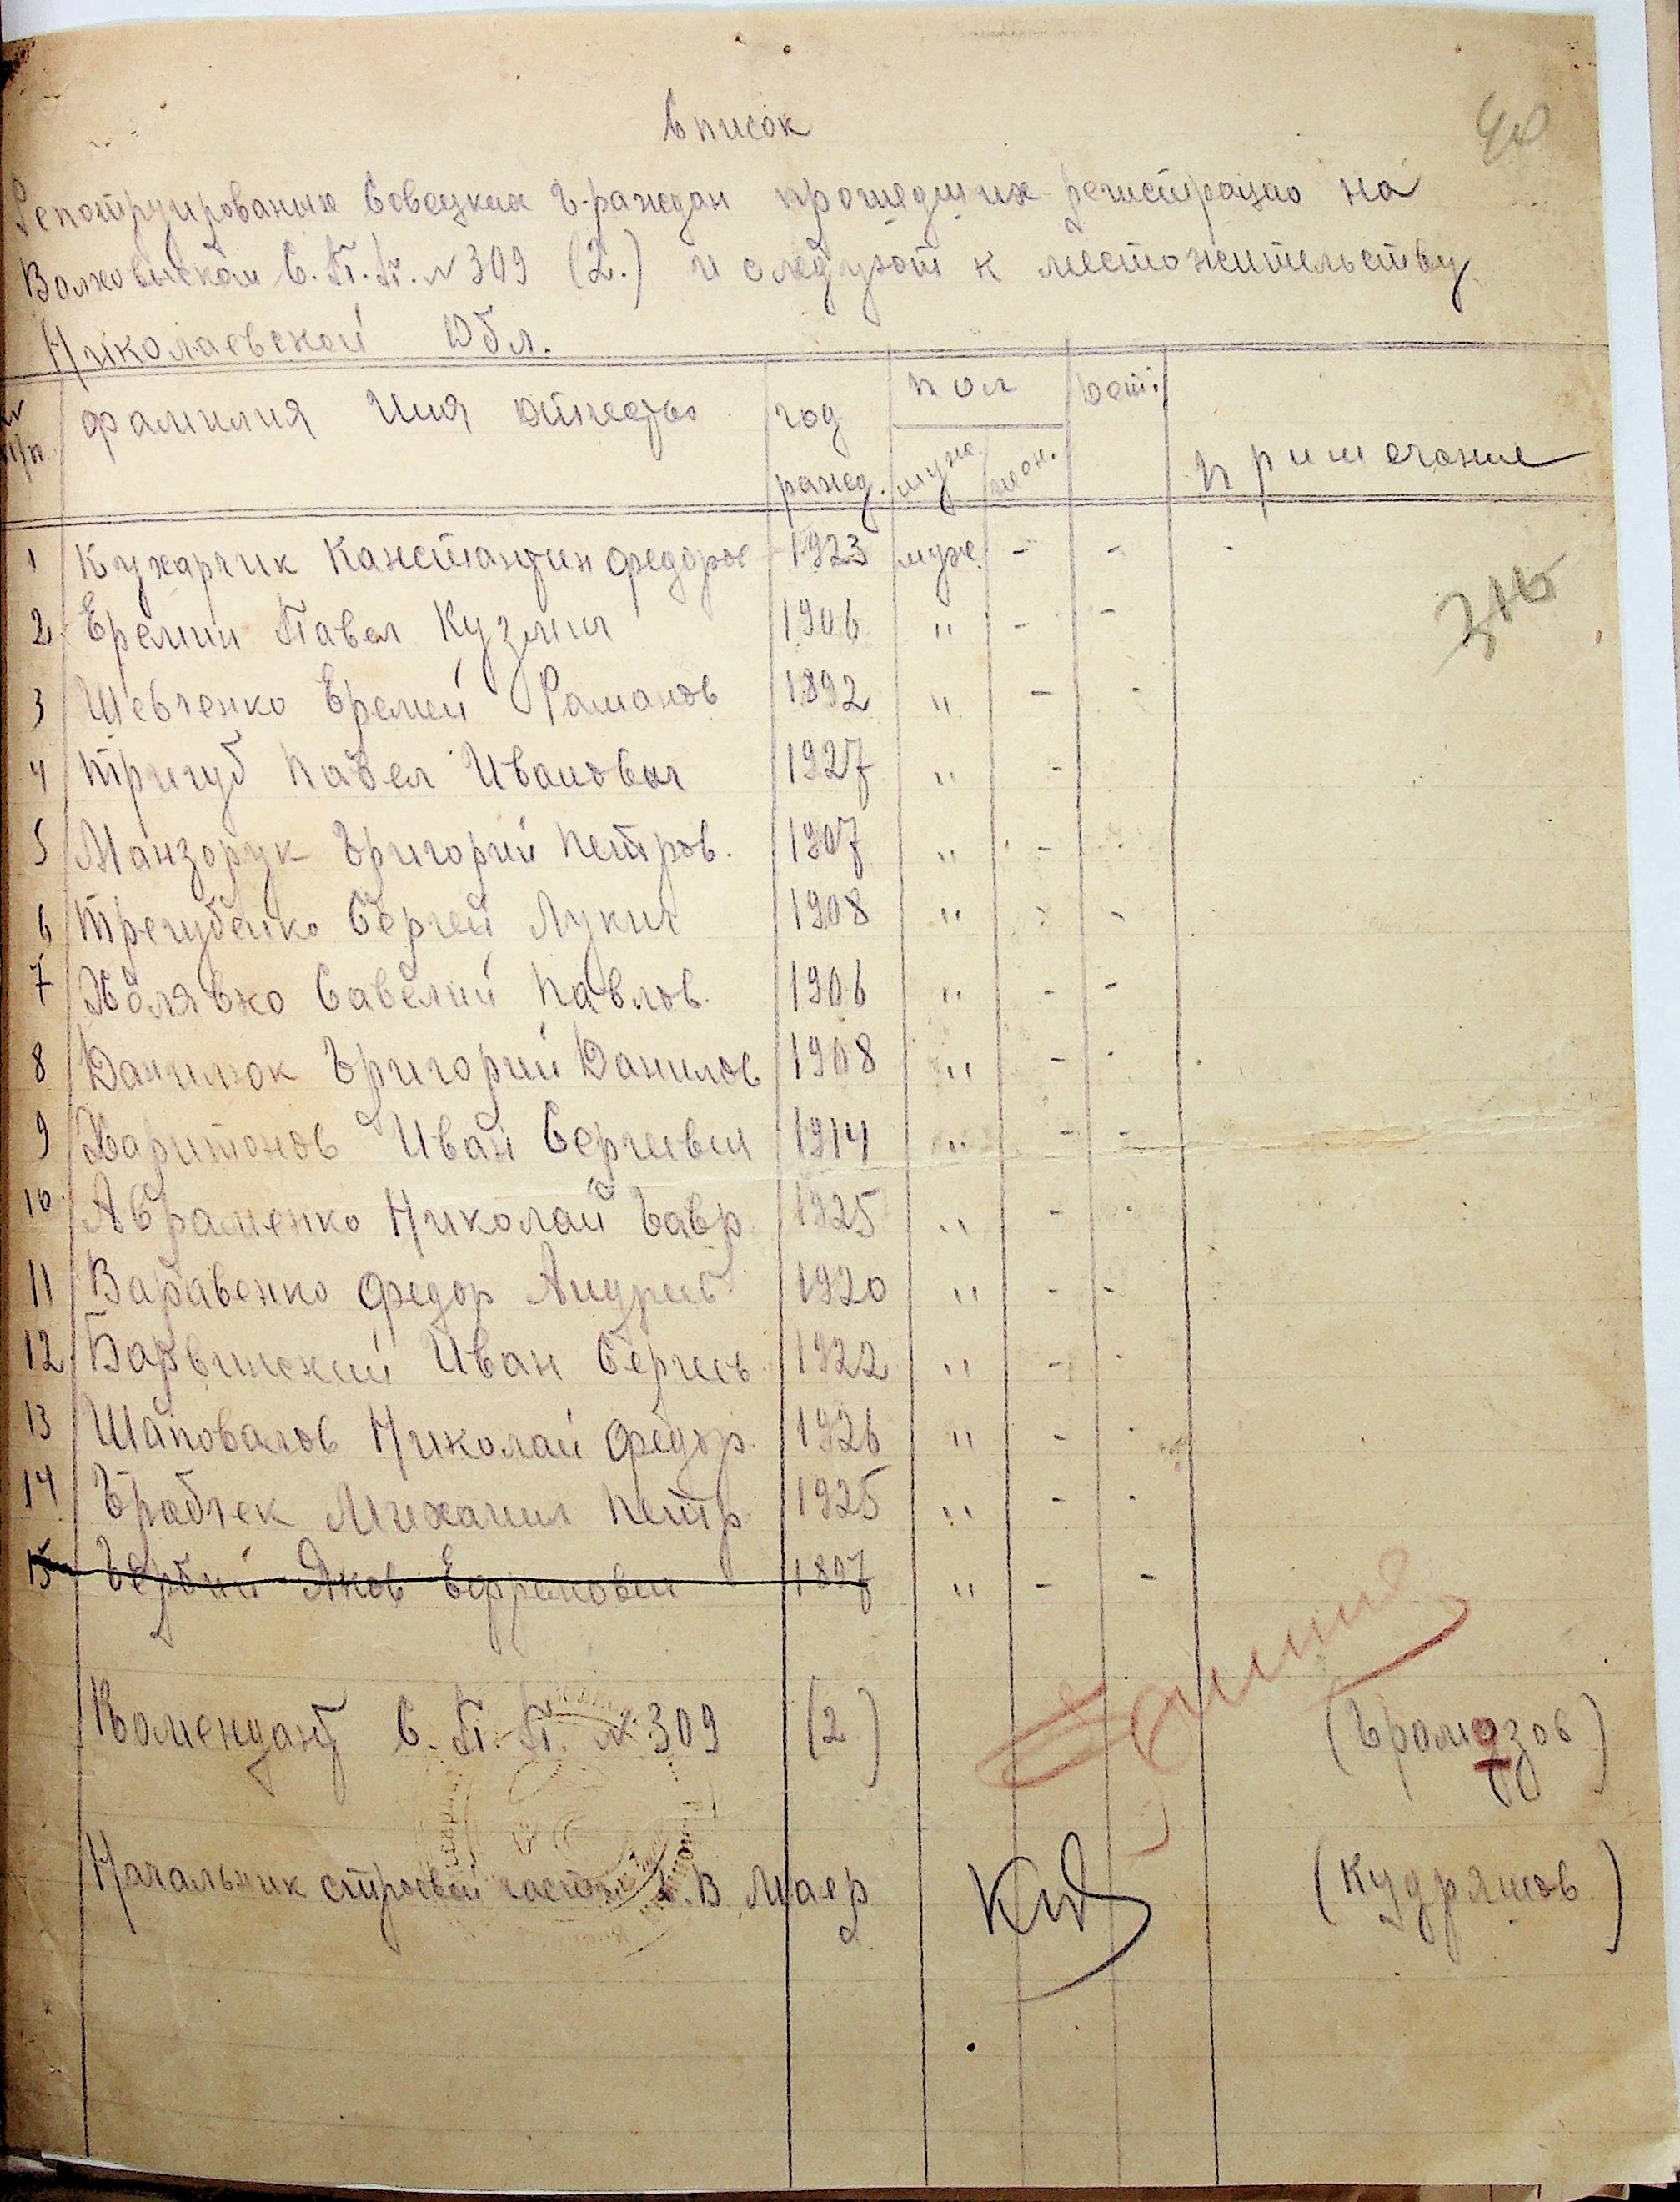 Список
Репотруированых Совецких Граждан прошедших регистрацию на
Волковыском С.П.П. № 309 (2.) и следуют к местожительству
Николаевской Обл.
№ п/п фамилия Имя отчество год рожед. пол муж. жен. Дети Примечание
1 Кухарчик Канстантин Федоров 1923 муж. - - -
2 Еремин Павел Кузмич 1906 " - -
3 Шевченко Еремей Раманов 1892 " - -
4 Тригуб Павел Иванович 1927 " -
5 Манзорук Григорий Петров. 1907 " - -
6 Трегубенко Сергей Лукич 1908 " - -
7 Холявко Савелий Павлов. 1906 " - -
8 Данилюк Григорий Данилов 1908 " - -
9 Харитонов Иван Сергиевич 1914 " - -
10 Авраменко Николай Гавр. 1925 " - -
11 Варавенко Федор Андреев 1920 " - -
12 Барвинский Иван Сергеев. 1922 " - -
13 Шаповалов Николай Федор. 1926 " - -
14 Грабчек Михаил Петр. 1925 " - -
15 Яков 1897 " - -
Комендант С.П.П. № 309 (2)
Начальник строевой части Г.В. Маер (Кудряшов)